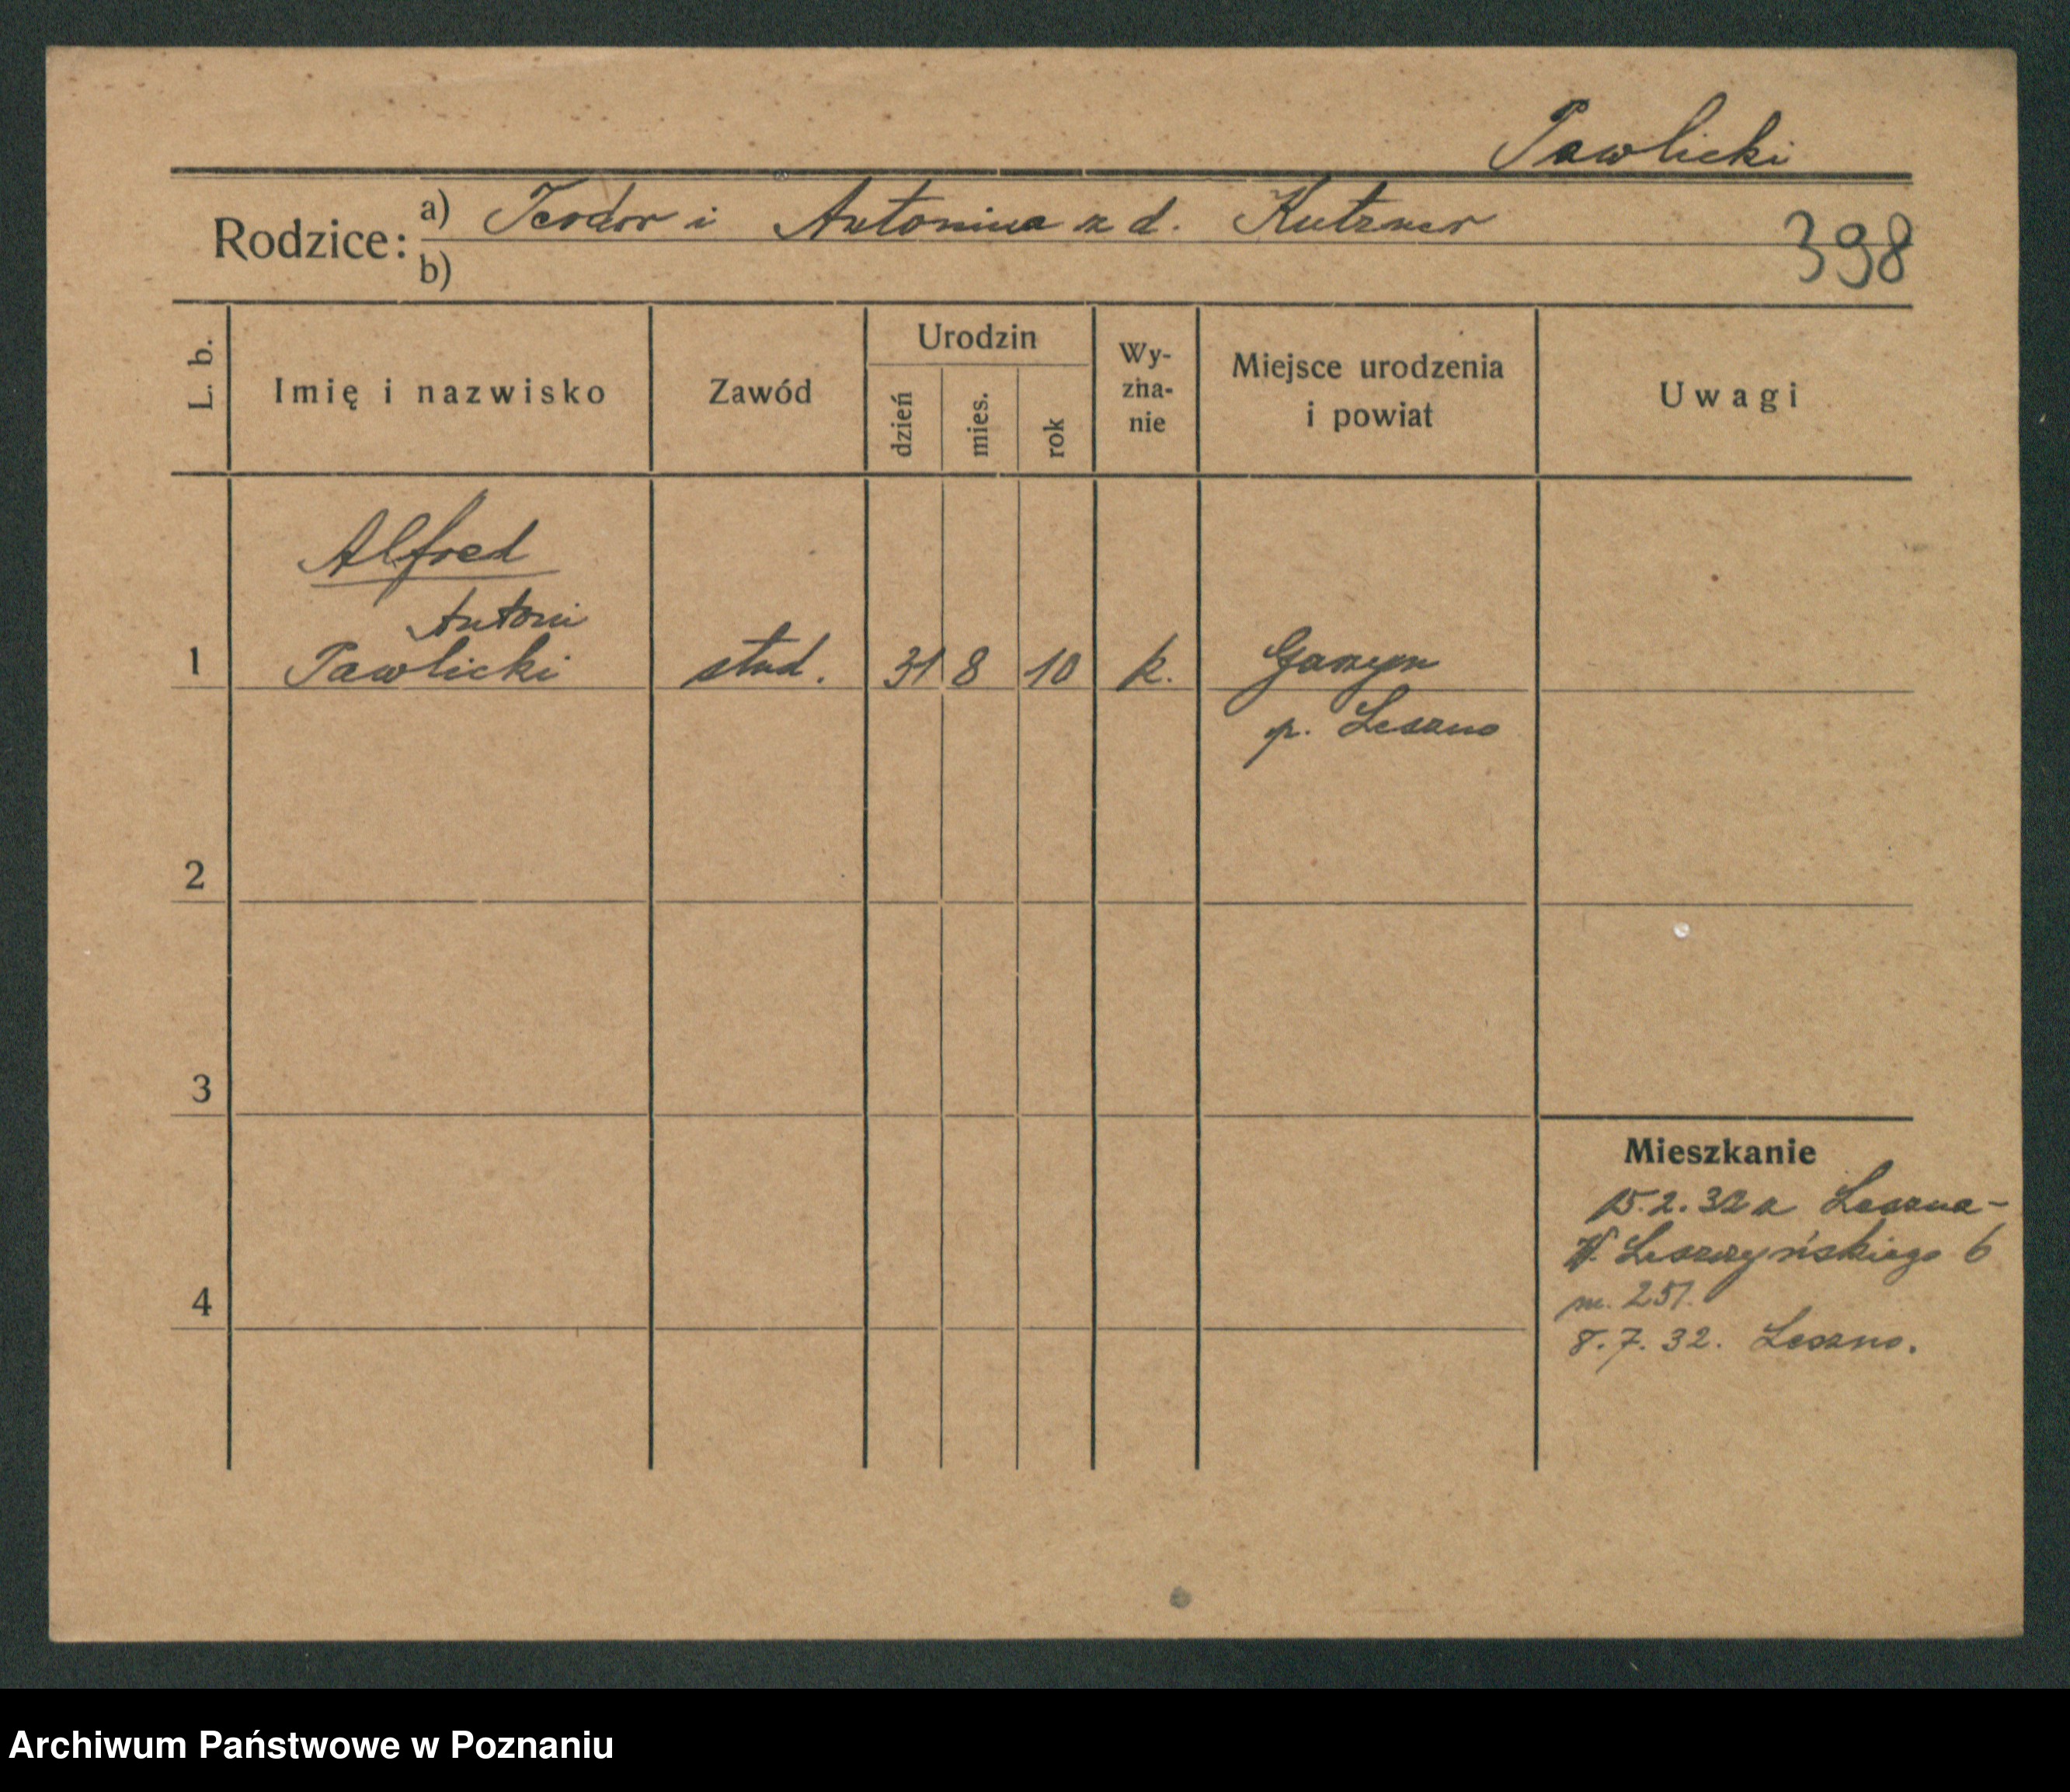 Pawlicki
Rodzice: a) Teodor i Antonina z d. Kutzner
398
b)
L. b.
Imię i nazwisko
Zawód
Urodzin
dzień
mies.
rok
Wy-
zna-
nie
Miejsce urodzenia
i powiat
Uwagi
Alfred
Antoni
1 Pawlicki stud. 31 8 10 k. Garzyn
p. Leszno
2
3
Mieszkanie
15.2.32 z Leszna-
W. Leszczyńskiego 6
4
m. 251.
8.7.32. Leszno.
Archiwum Państwowe w Poznaniu